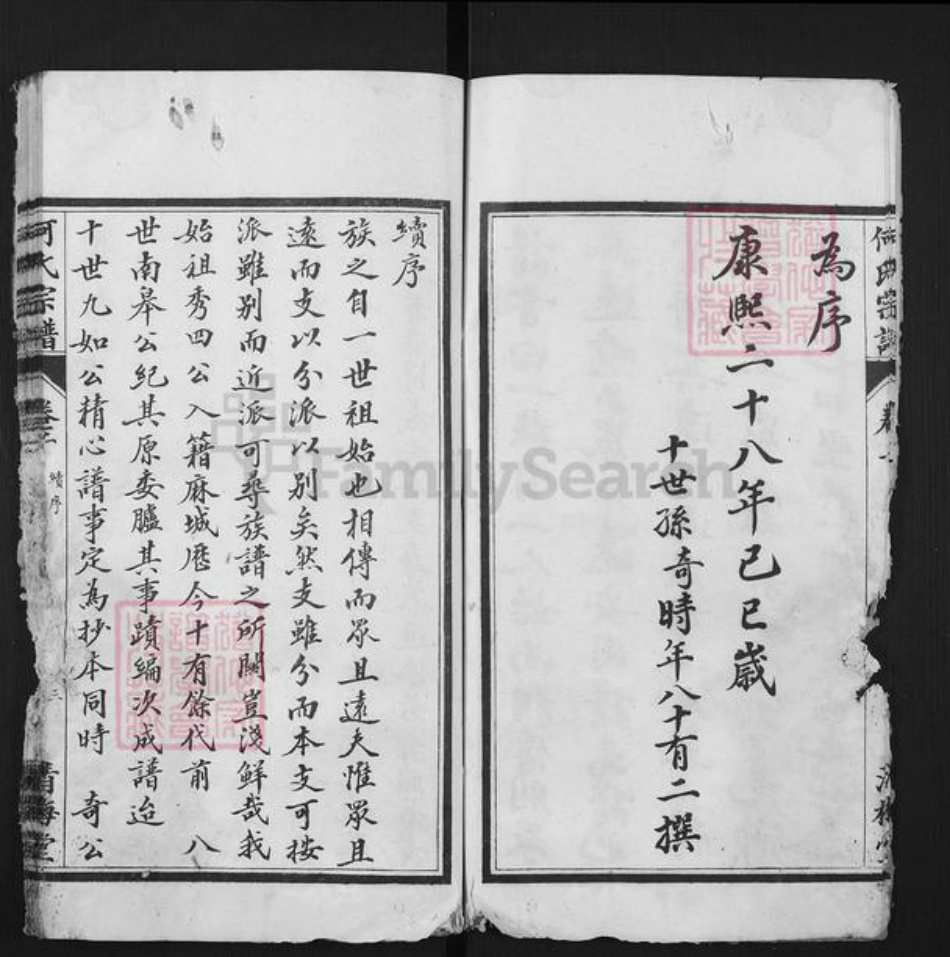 為序
康熙二十八年己巳歲
十世孫奇時年八十有二撰
續序
族之自一世祖始也相傳而眾且遠夫惟眾且
遠而支以分派以別矣然支雖分而本支可按
派雖別而近派可尋族譜之所關豈淺鮮哉我
始祖秀四公入籍麻城歷今十有餘代前八
世南皋公紀其原委臚其事蹟編次成譜迨
十世九如公精心譜事定為抄本同時奇公
何氏宗譜
卷
續序
三
FamilySearch